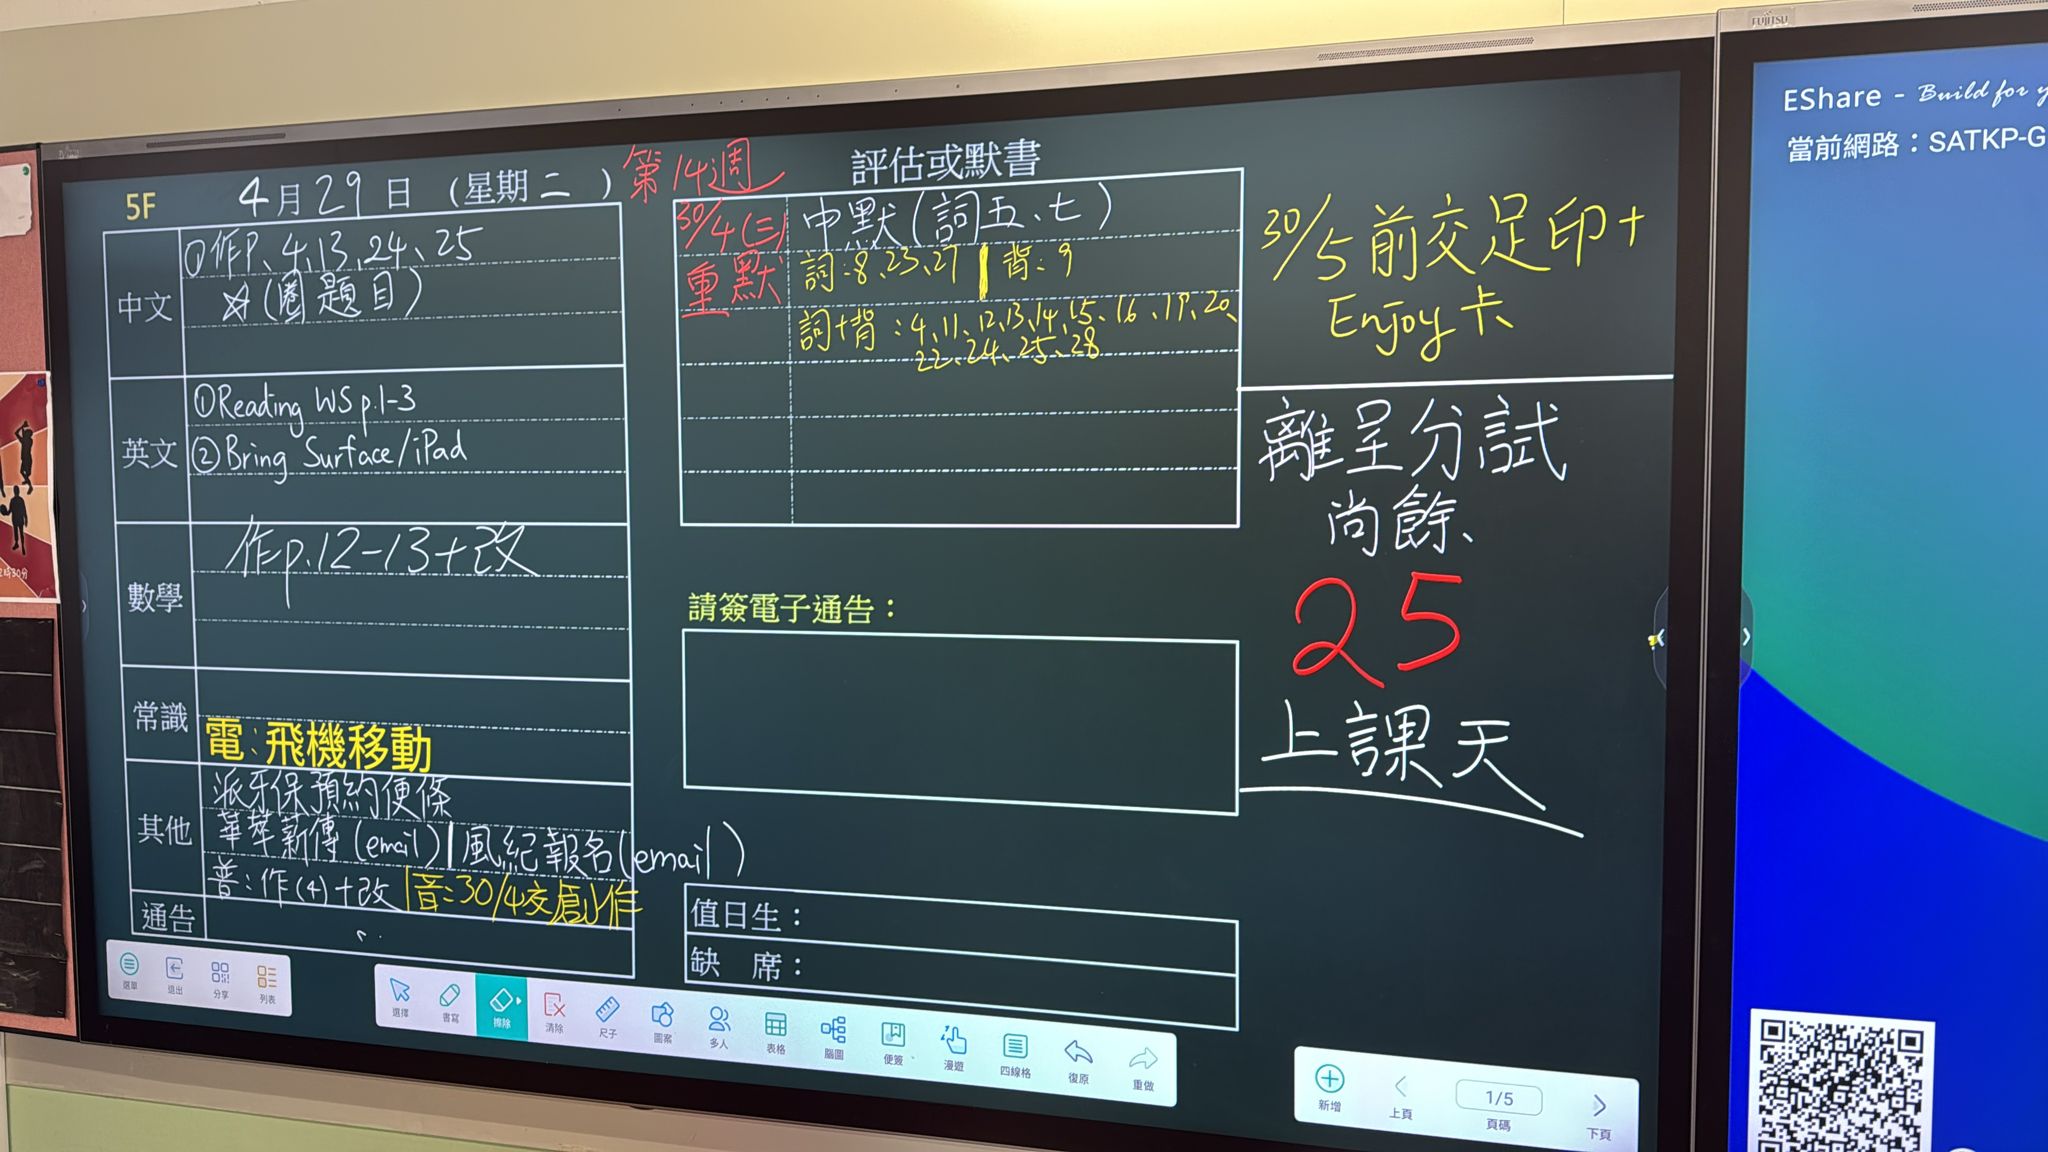 FUJITSU
EShare - Build for y
當前網路：SATKP-G
5F
4月29日 (星期二) 第14週
中文
①作P、4、13、24、25
☆(圈題目)
英文
①Reading WS p.1-3
②Bring Surface/iPad
數學
作p.12-13+改
常識
電：飛機移動
其他
派牙保預約便條
華萃薪傳(email)|風紀報名(email)
普：作(4)+改|音：30/4交創作
通告
評估或默書
30/4(三) 中默(詞五、七)
重默 詞：8、23、27 | 背：9
詞+背：4、11、12、13、14、15、16、19、20、
22、24、25、28
請簽電子通告：
值日生：
缺 席：
30/5前交足印+
Enjoy卡
離呈分試
尚餘、
25
上課天
選單 退出 分享 列表
選擇 書寫 擦除 清除 尺子 圖案 多人 表格 腦圖 便簽 漫遊 四線格 復原 重做
新增 上頁 1/5 頁碼 下頁